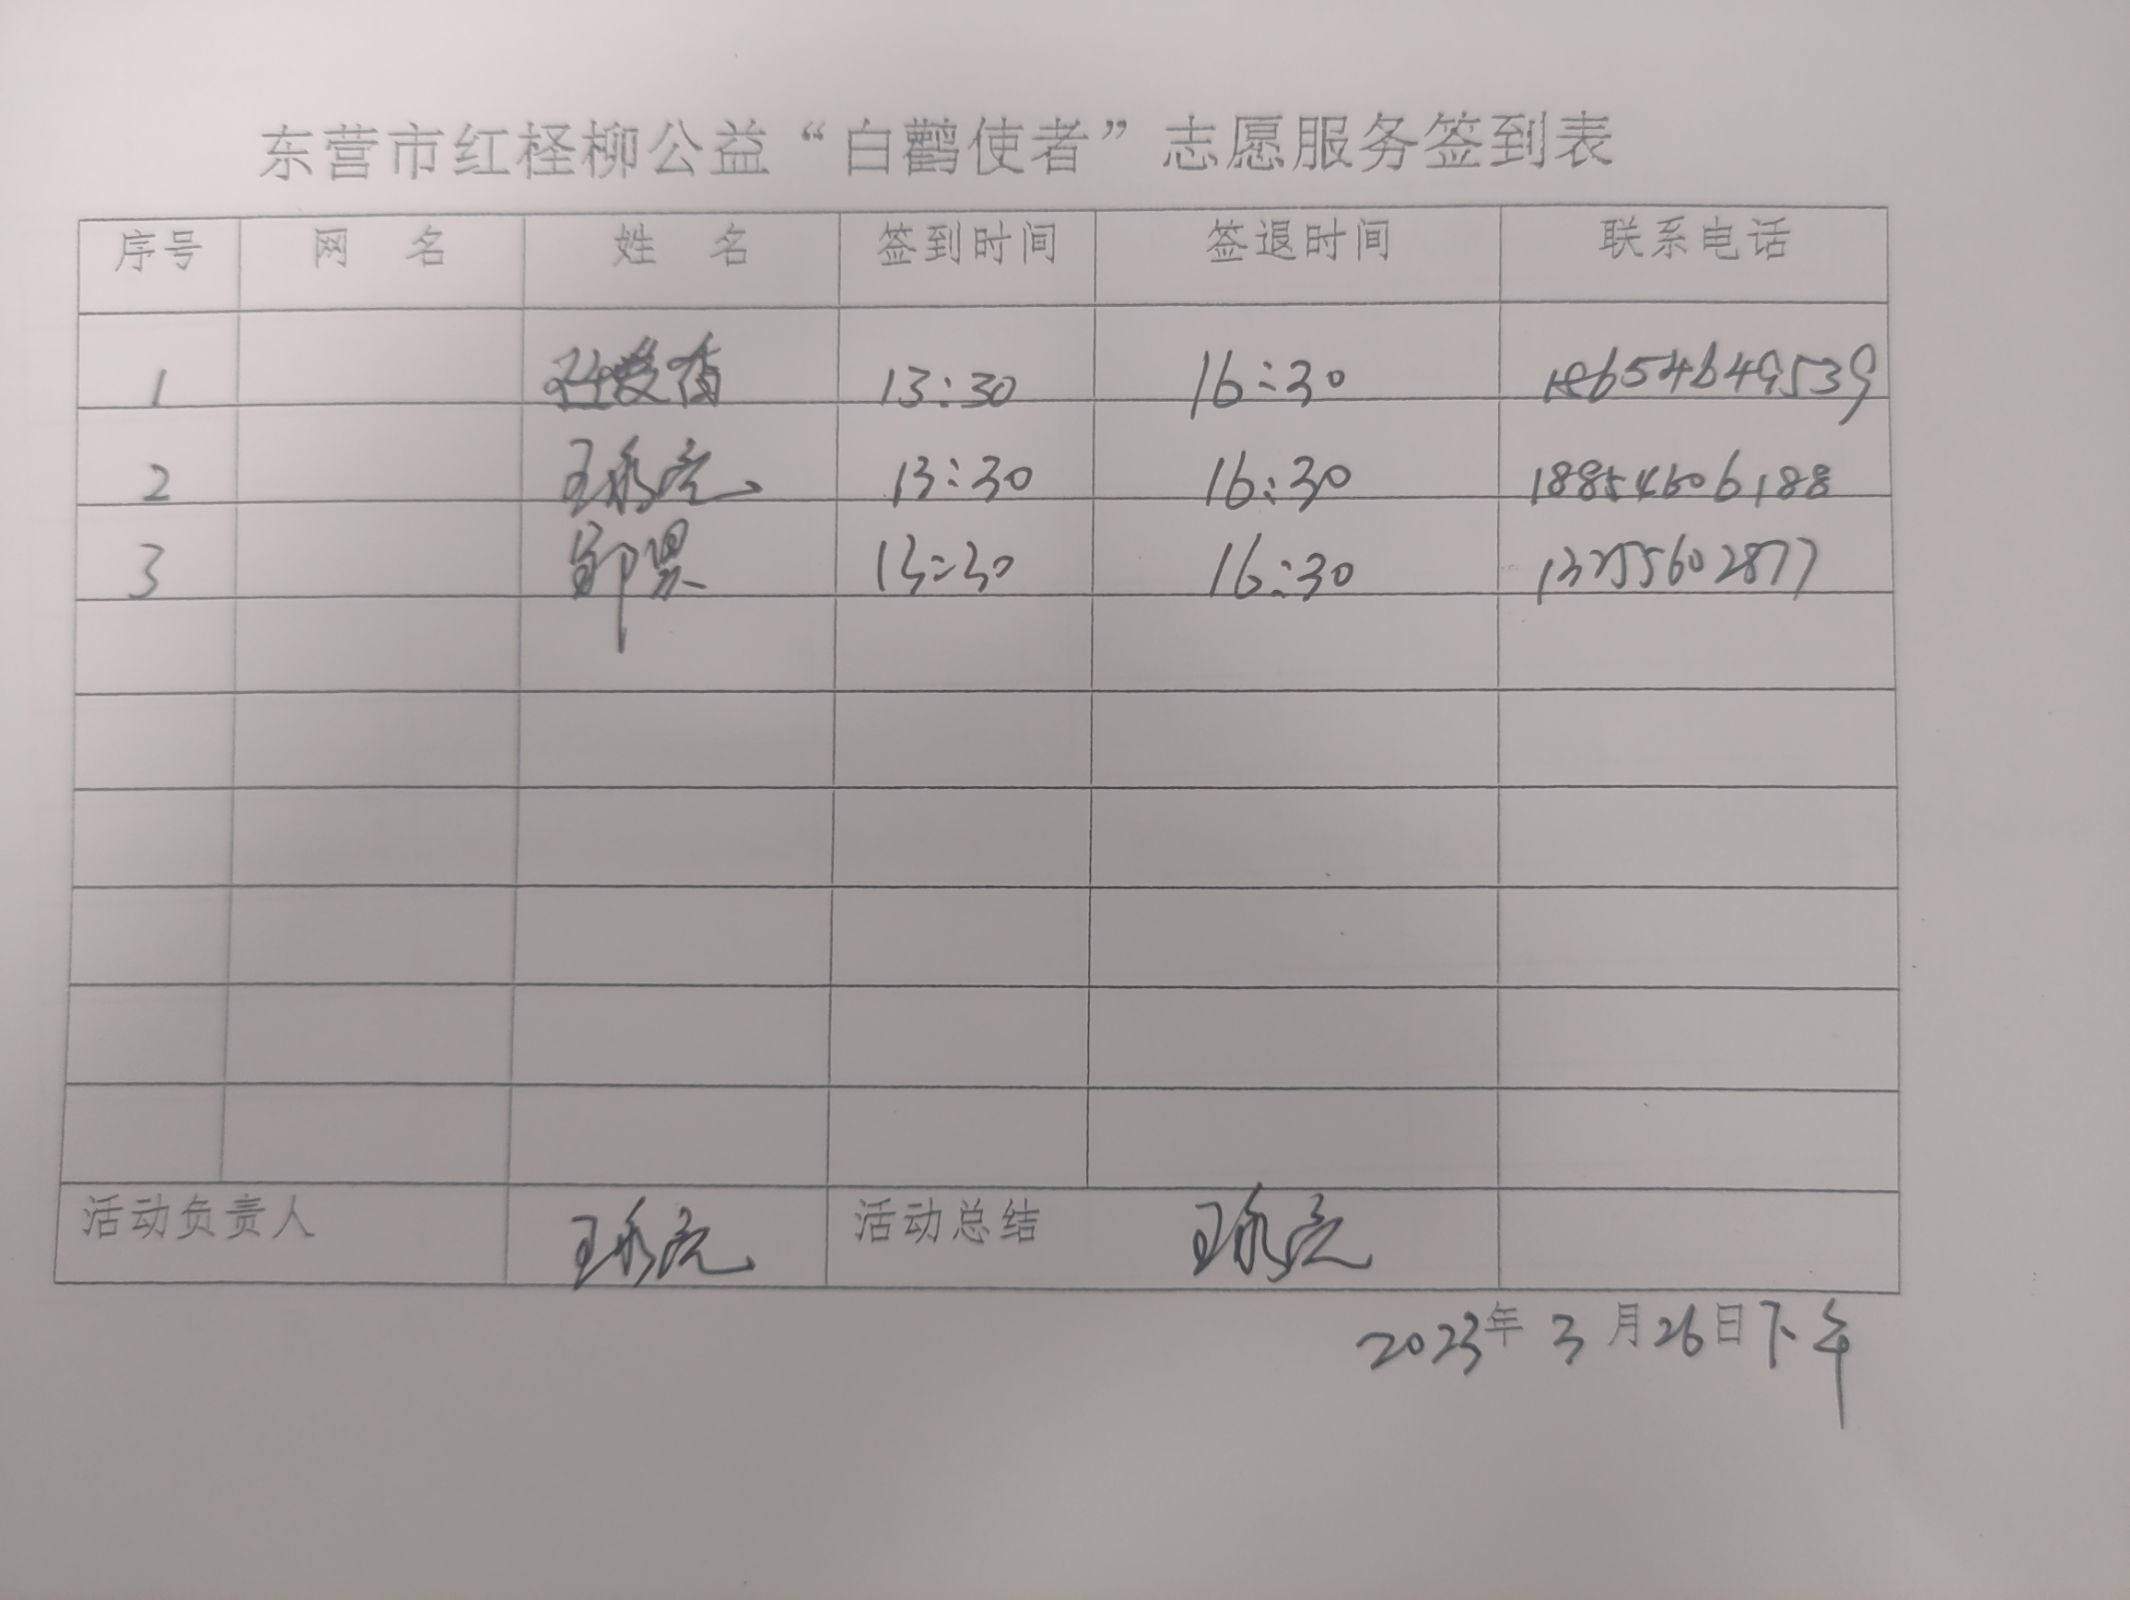 东营市红柽柳公益“白鹳使者”志愿服务签到表
序号 网 名 姓 名 签到时间 签退时间 联系电话
1 13:30 16:30 18654649539
2 王永亮 13:30 16:30 18854606188
3 13:30 16:30 13255602877
活动负责人 王永亮 活动总结 王永亮
2023年3月26日下午